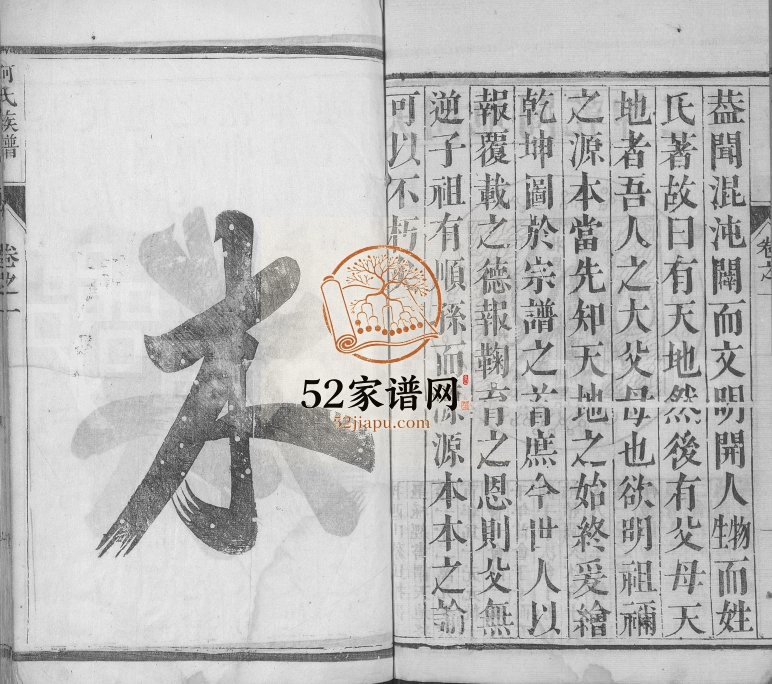 卷之一
葢聞混沌闢而文明開人生物而姓
氏著故曰有天地然後有父母天
地者吾人之大父母也欲明祖禰
之源本當先知天地之始終爰繪
乾坤圖於宗譜之首庶今世人以
報覆載之德報鞠育之恩則父無
逆子祖有順孫而源源本本之諭
可以不朽
本
何氏族譜
卷之一
52家谱网
52jiapu.com